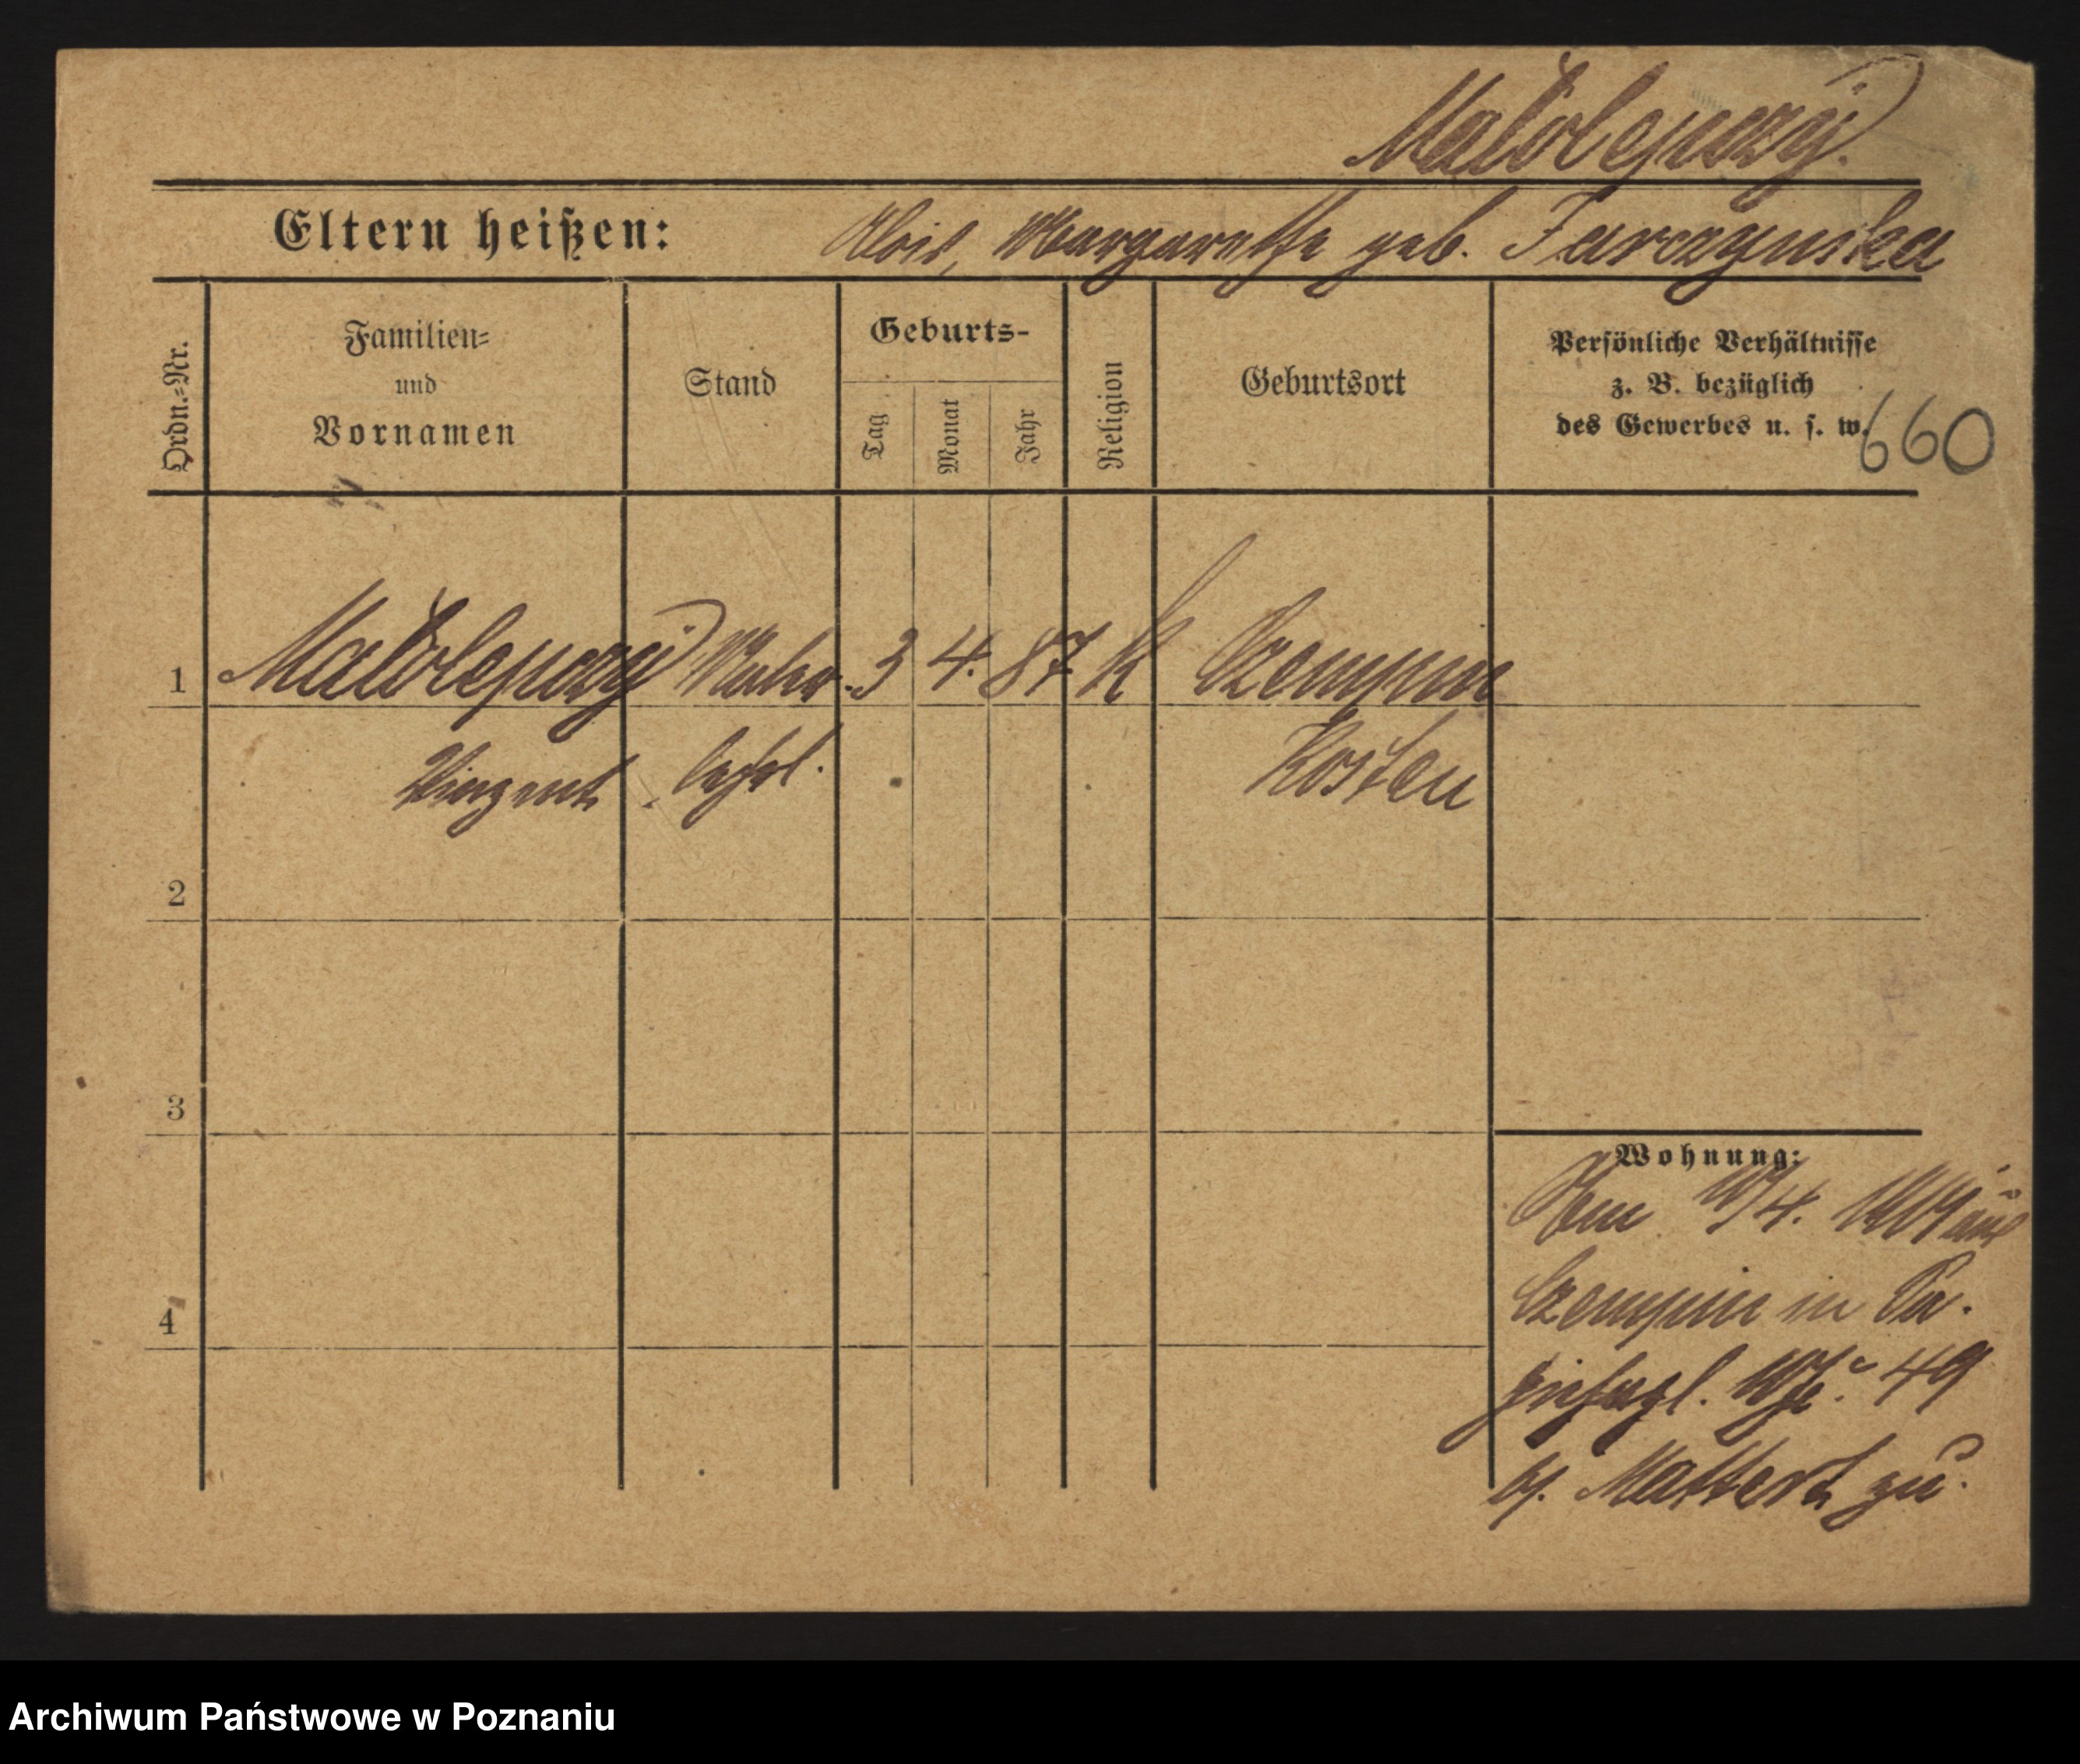 Małolepszy.
Eltern heißen: Alois, Margarethe geb. Jarczynska
Ordn.-Nr.
Familien-
und
Vornamen
Stand
Geburts-
Tag
Monat
Jahr
Religion
Geburtsort
Persönliche Verhältnisse
z. B. bezüglich
des Gewerbes u. s. w.
660
1 Małolepszy 3 4. 87 K Czempin
Vinzent Kosten
2
3
4
Wohnung:
4. aus
Czempin in
49
b/. Mattert zu.
Archiwum Państwowe w Poznaniu